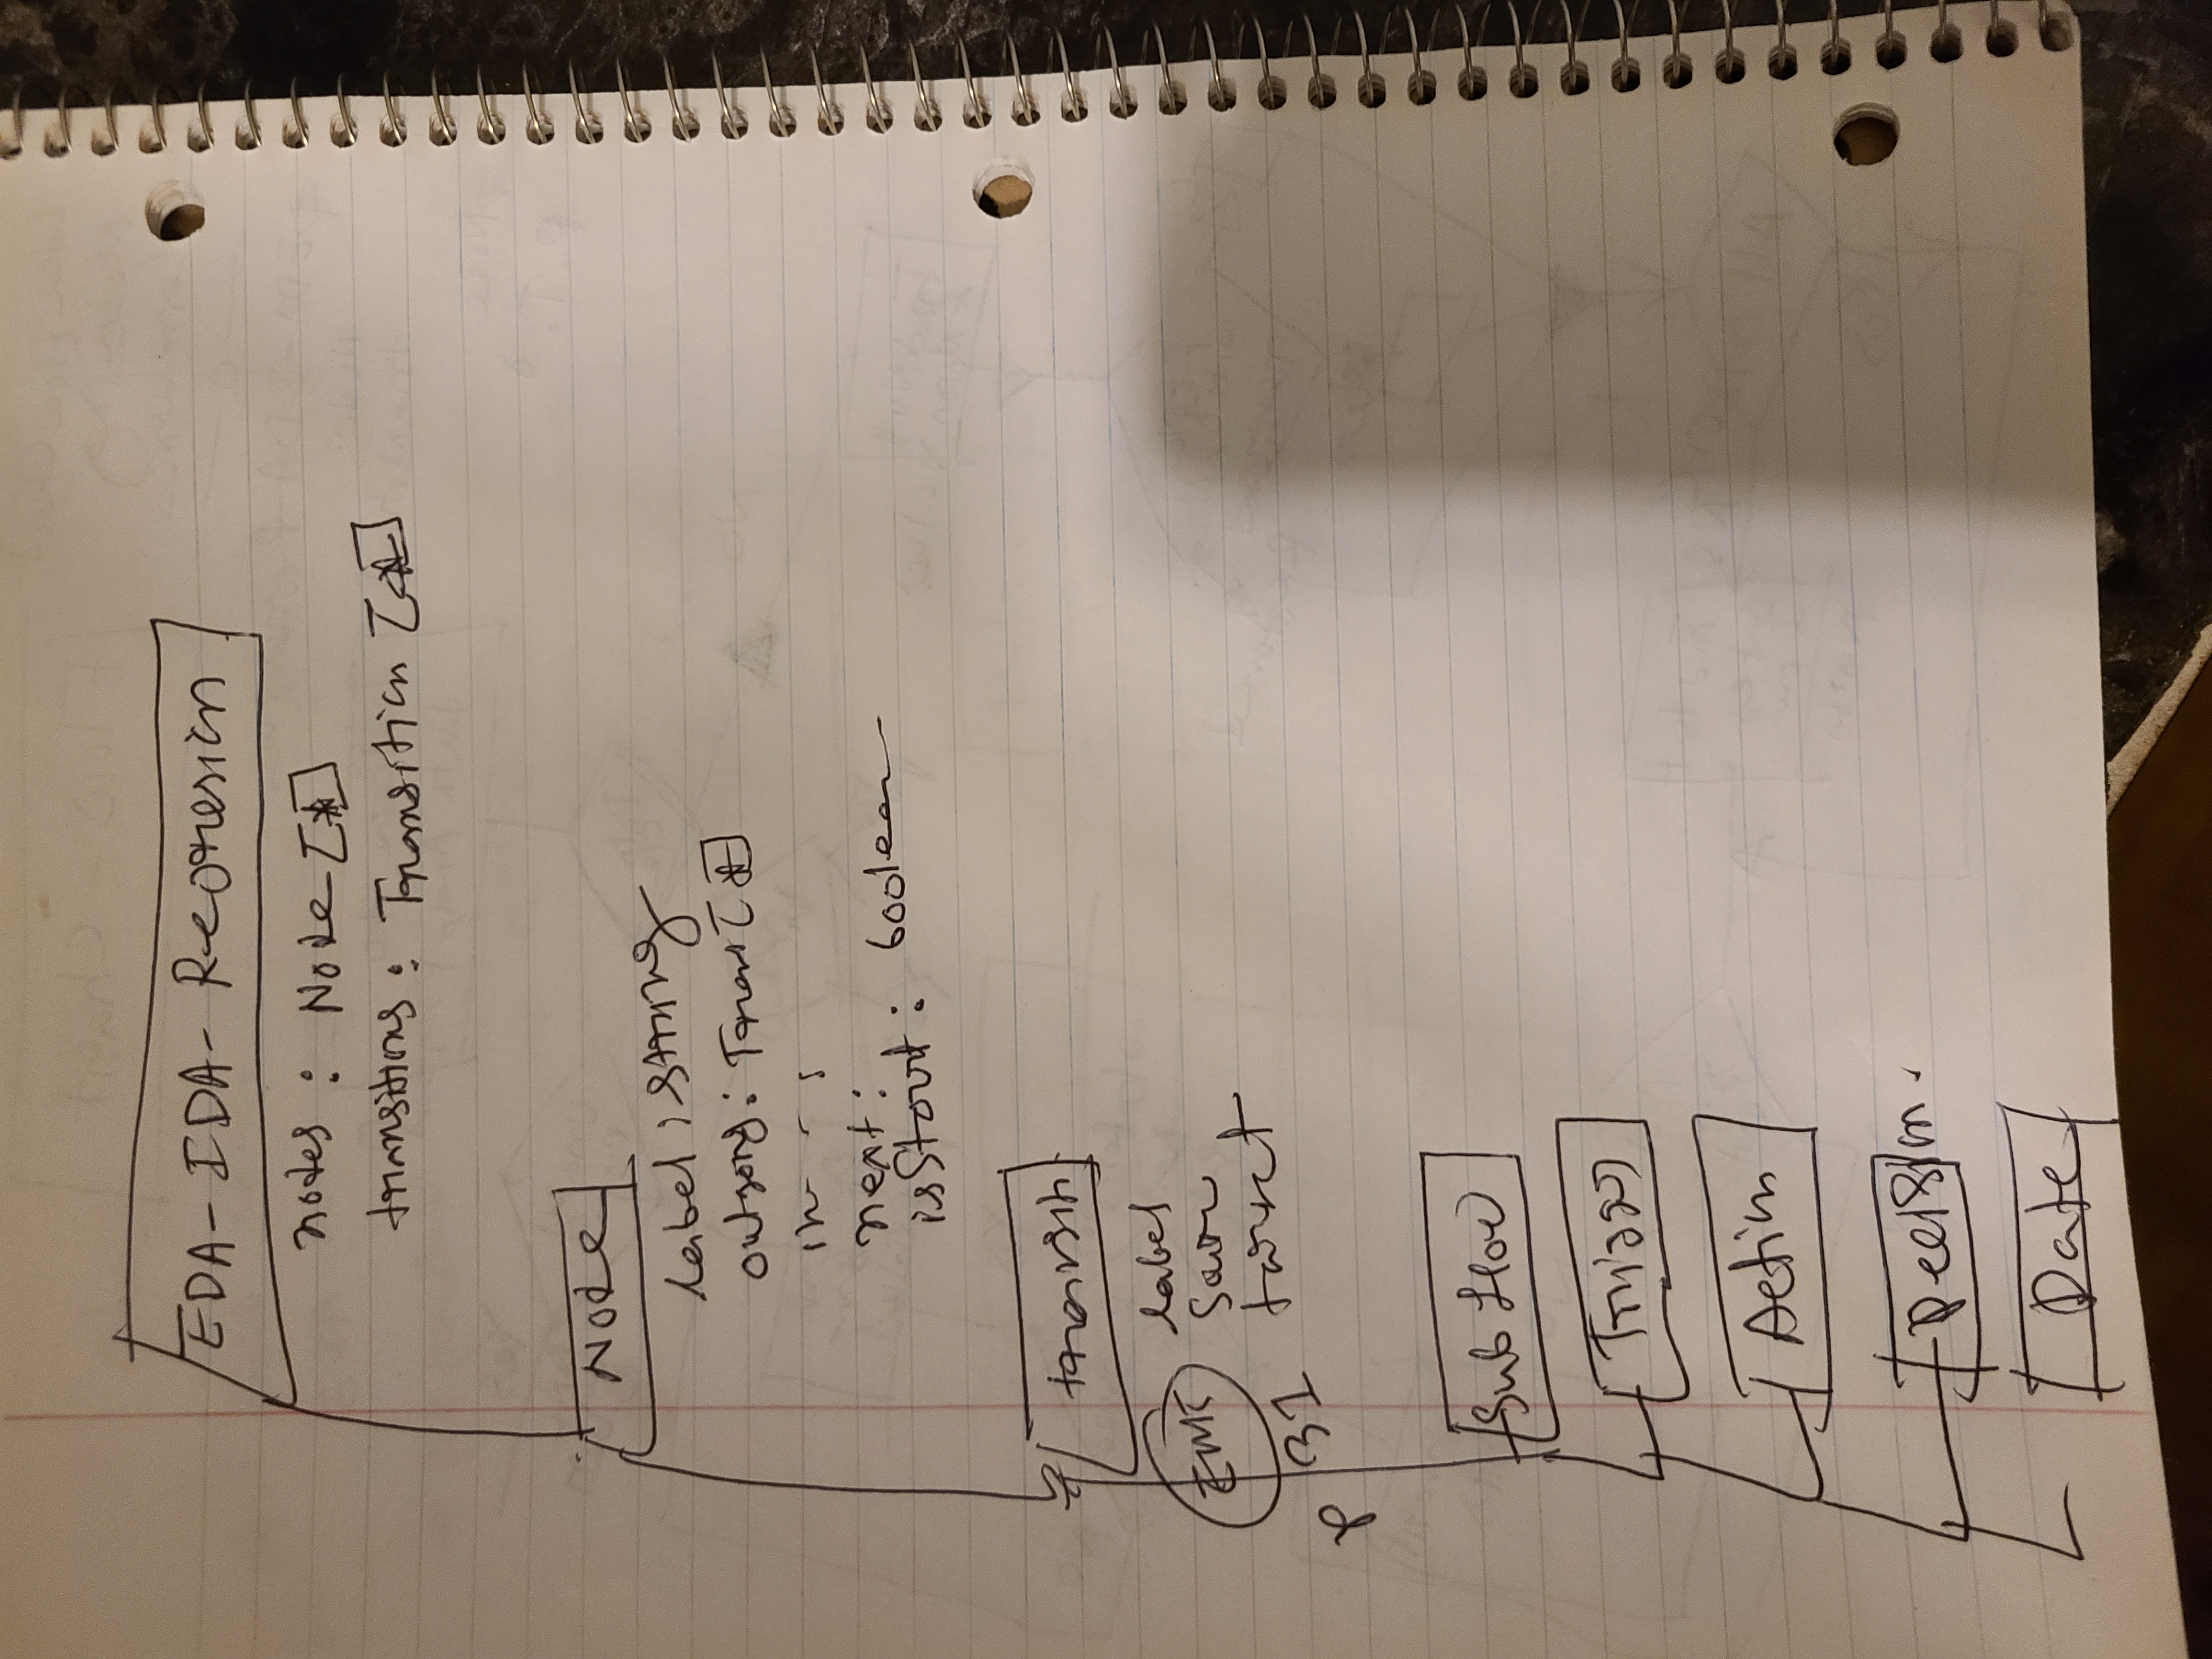 EDA-IDA-Regresion
nodes : Node [*]
transitions : Transition [*]
Node
label : string
outgong : Trans [*]
in - - :
next :
isStart : boolean
transitn
label
target
31
P
Sub flow
Trigger
Action
Decision.
Date